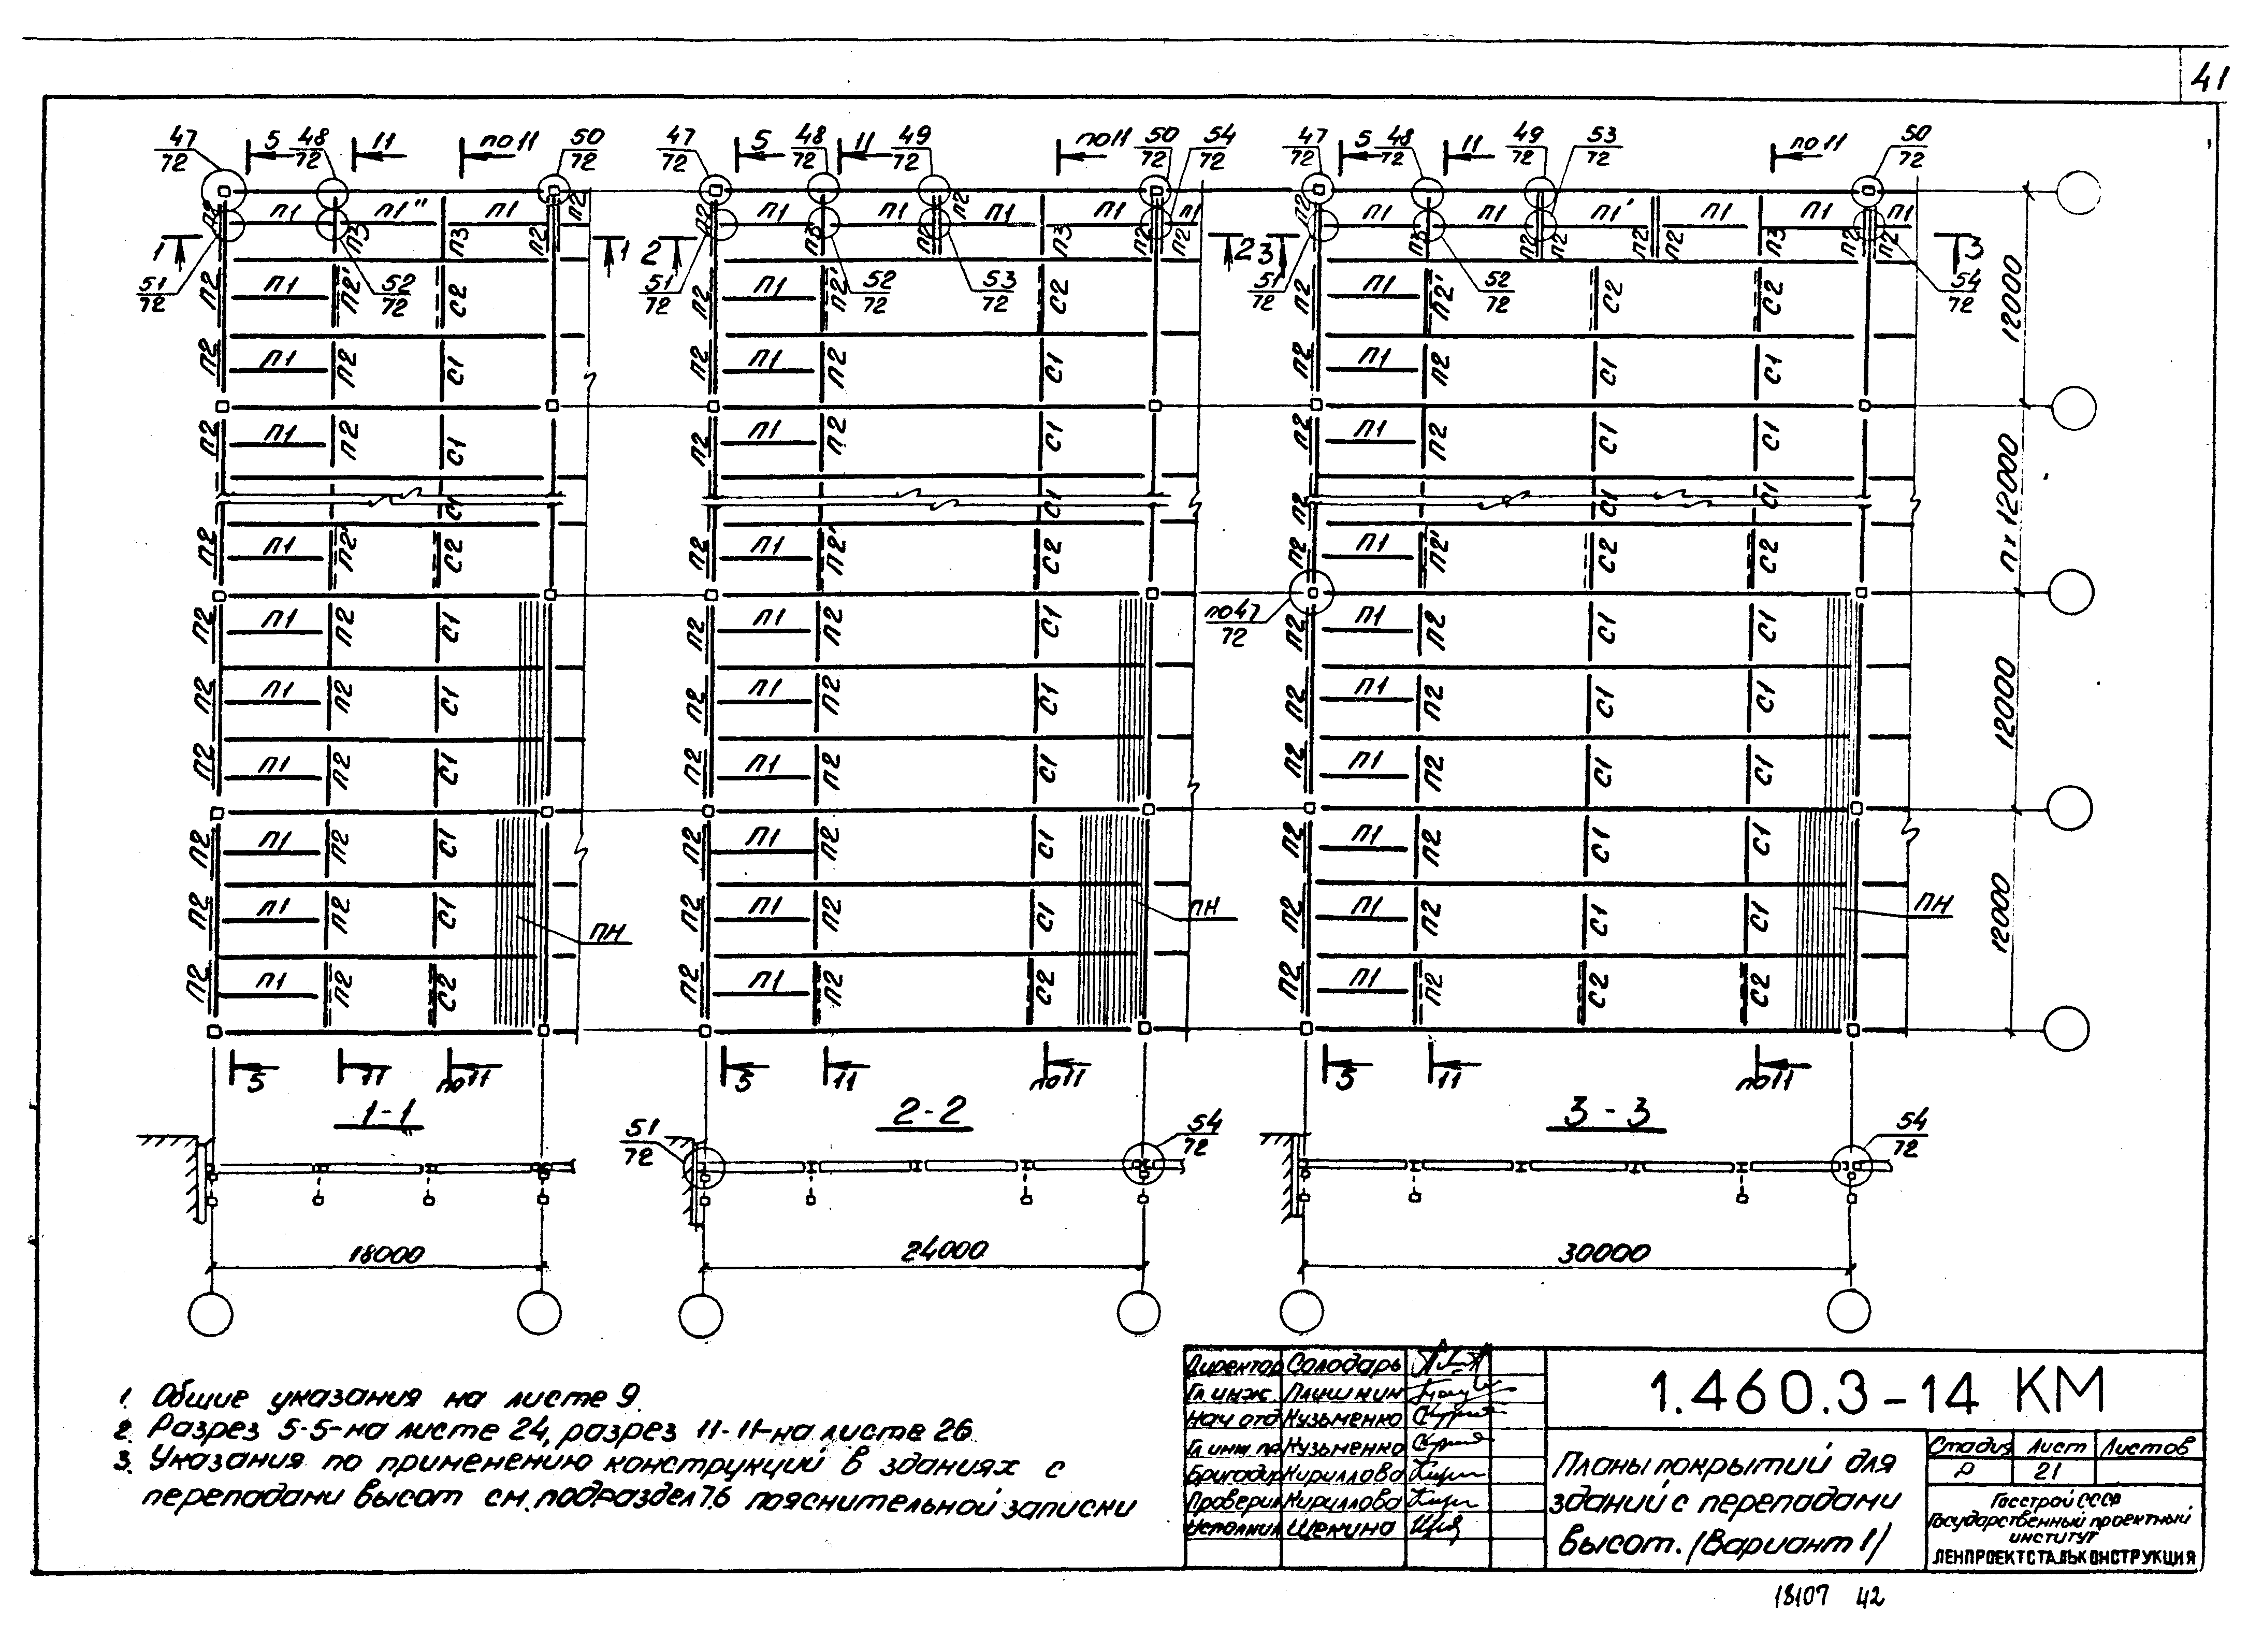 41
47 5 48 11 по11 50 47 5 48 11 49 по11 50 54 47 5 48 11 49 53 по11 50
72 72 72 72 72 72 72 72 72 72 72 72 72 72
П2 П1 П1" П1 П2 П2 П1 П1 П2 П1 П1 П1 П2 П1 П1 П1' П1 П1 П1
1 П3 П3 П2 1 2 П3 П2 П3 П2 П2 2 3 П3 П2 П2 П2 П2 П3 П2 П2 3
51 52 51 52 53 51 52 54
72 72 72 72 72 72 72 72
П2 П1 П2' С2 П2 П1 П2' С2 П2 П1 П2' С2 С2
12000
П2 П1 П2 С1 П2 П1 П2 С1 П2 П1 П2 С1 С1
П2 П1 П2 С1 П2 П1 П2 С1 П2 П1 П2 С1 С1
С1 С1 П2 С1 С1
п х 12000
П2 П1 П2' С2 П2 П1 П2' С2 П2 П1 П2' С2 С2
по47
72
П2 П1 П2 С1 П2 П1 П2 С1 П2 П1 П2 С1 С1
П2 П1 П2 С1 П2 П1 П2 С1 П2 П1 П2 С1 С1
12000
П2 П1 П2 С1 П2 П1 П2 С1 П2 П1 П2 С1 С1
П2 П1 П2 С1 П2 П1 П2 С1 П2 П1 П2 С1 С1
П2 П1 П2 С1 ПН П2 П1 П2 С1 ПН П2 П1 П2 С1 С1 ПН
12000
П2 П1 П2 С2 П2 П1 П2 С2 П2 П1 П2 С2 С2
5 11 по11 5 11 по11 5 11 по11
1-1 2-2 3-3
51 54 54
72 72 72
18000 24000 30000
1. Общие указания на листе 9.
2. Разрез 5-5-на листе 24, разрез 11-11-на листе 26
3. Указания по применению конструкций в зданиях с
перепадами высот см. подраздел 7.6 пояснительной записки
Директор Солодарь
Гл инж. Плишкин
Нач отд Кузьменко
Гл инж пр Кузьменко
Бригадир Кириллова
Проверил Кириллова
Исполнил Щекина
1.460.3-14 КМ
Планы покрытий для
зданий с перепадами
высот. (Вариант 1)
Стадия Лист Листов
Р 21
Госстрой СССР
Государственный проектный
институт
ЛЕНПРОЕКТСТАЛЬКОНСТРУКЦИЯ
18107 42